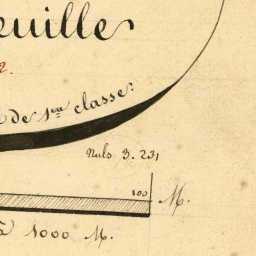 euille
2.
de 1ère classe.
Nulo 3.231
100 M.
à 1000 M.